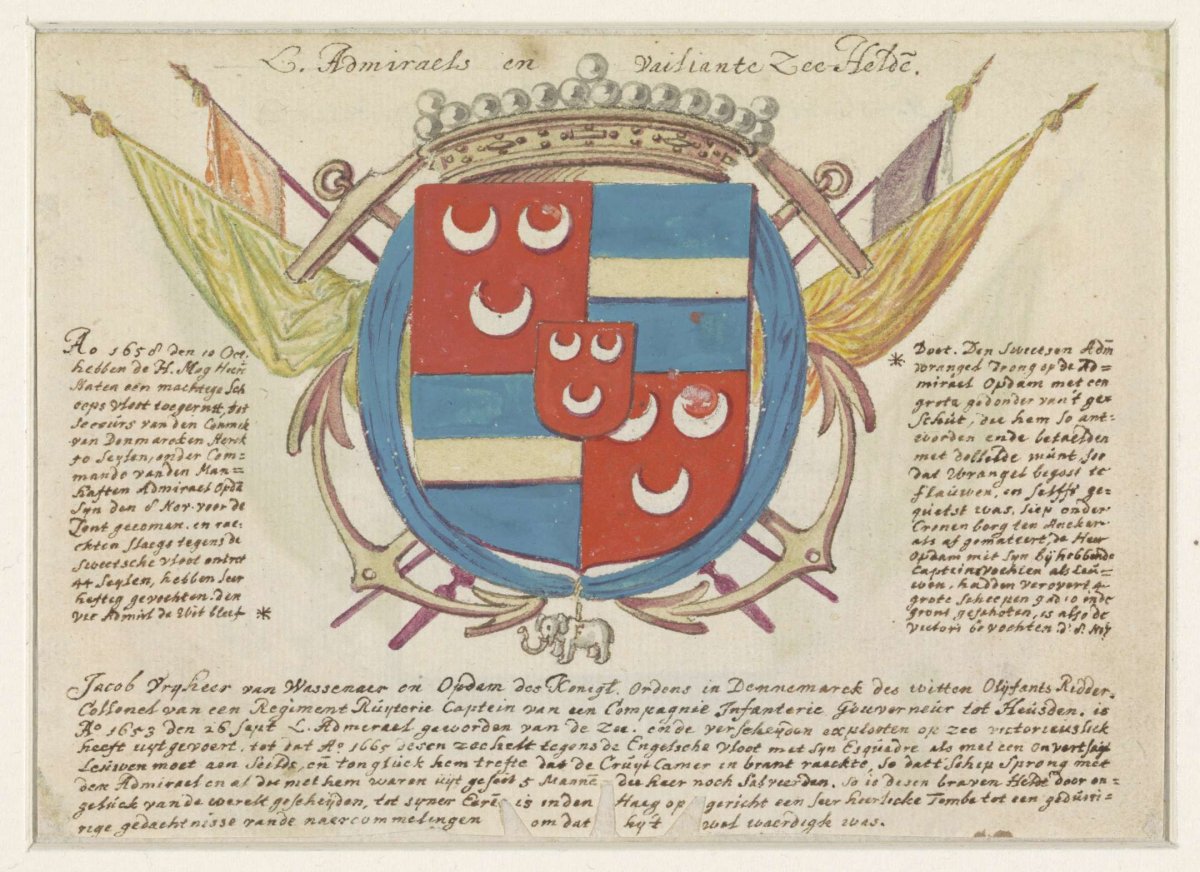 L. Admiraels en Vailiante Zee-Heldē.
Ao 1658 den 10 Oct.
hebben de H. Mog Heeñ
Staten een machtege Sch
eeps vloot toegerust, tot
secours van den Connink
van Denmarcken sterck
40 Seylen, onder Com=
mando vanden Man=
haften Admirael Opdā
Syn den 8 Nov. voor de
Sont gecomen. en rae=
chten slaegs tegens de
Sweetsche vloot ontret
44 Seylen, hebben seer
heftig gevochten. den
vic Admirl de Wit bleef *
* Doot. Den Sweetsen Adm
Wrangel drong op de Ad=
mirael Opdam met een
grote gedonder van't ges
Schut, die hem so ant=
worden ende betaelden
met deselfde munt soo
dat Wrangel begost te
flauwen, en selffs ge=
quetst was, liep onder
Cronenborg ten Ancker
als af gematteert, de Heer
Opdam met syn bij hebbende
Capteins vochten als Leu=
wen, hadden verovert 4
grote scheepen gad 10 inde
gront geschoten, is also de
victori bevochten d' 8 Nov
Jacob Vryheer van Wassenaer en Opdam des Konigl. Ordens in Dennemarck des witten Olijfants Ridder.
Collonel van een Regiment Ruyterie Captein van een Compagnie Infanterie Gouverneur tot Heusden. is
Ao 1653 den 26 Sept L. Admirael geworden van de Zee. ende verscheyden exploiten op zee victorieuslick
heeft uyt gevoert. tot dat Ao 1665 desen zee helt tegens de Engelsche vloot met syn Esquadre als met een onvertsaig
Leuwen moet aen Seilde, en tongluck hem trefte dat de Cruyt Camer in brant raeckte, so datt Schip Sprong met
den Admirael en al die met hem waren uyt geseit 5 Mannē die haer noch Salveerden. so is desen braven Heldt door on=
geluck van de werelt gescheyden, tot syner Eere is inden Haeg op gericht een seer heerlicke Tombe tot een gedurri=
rige gedachtnisse vande naercommelingen om dat hij't wel waerdigh was.